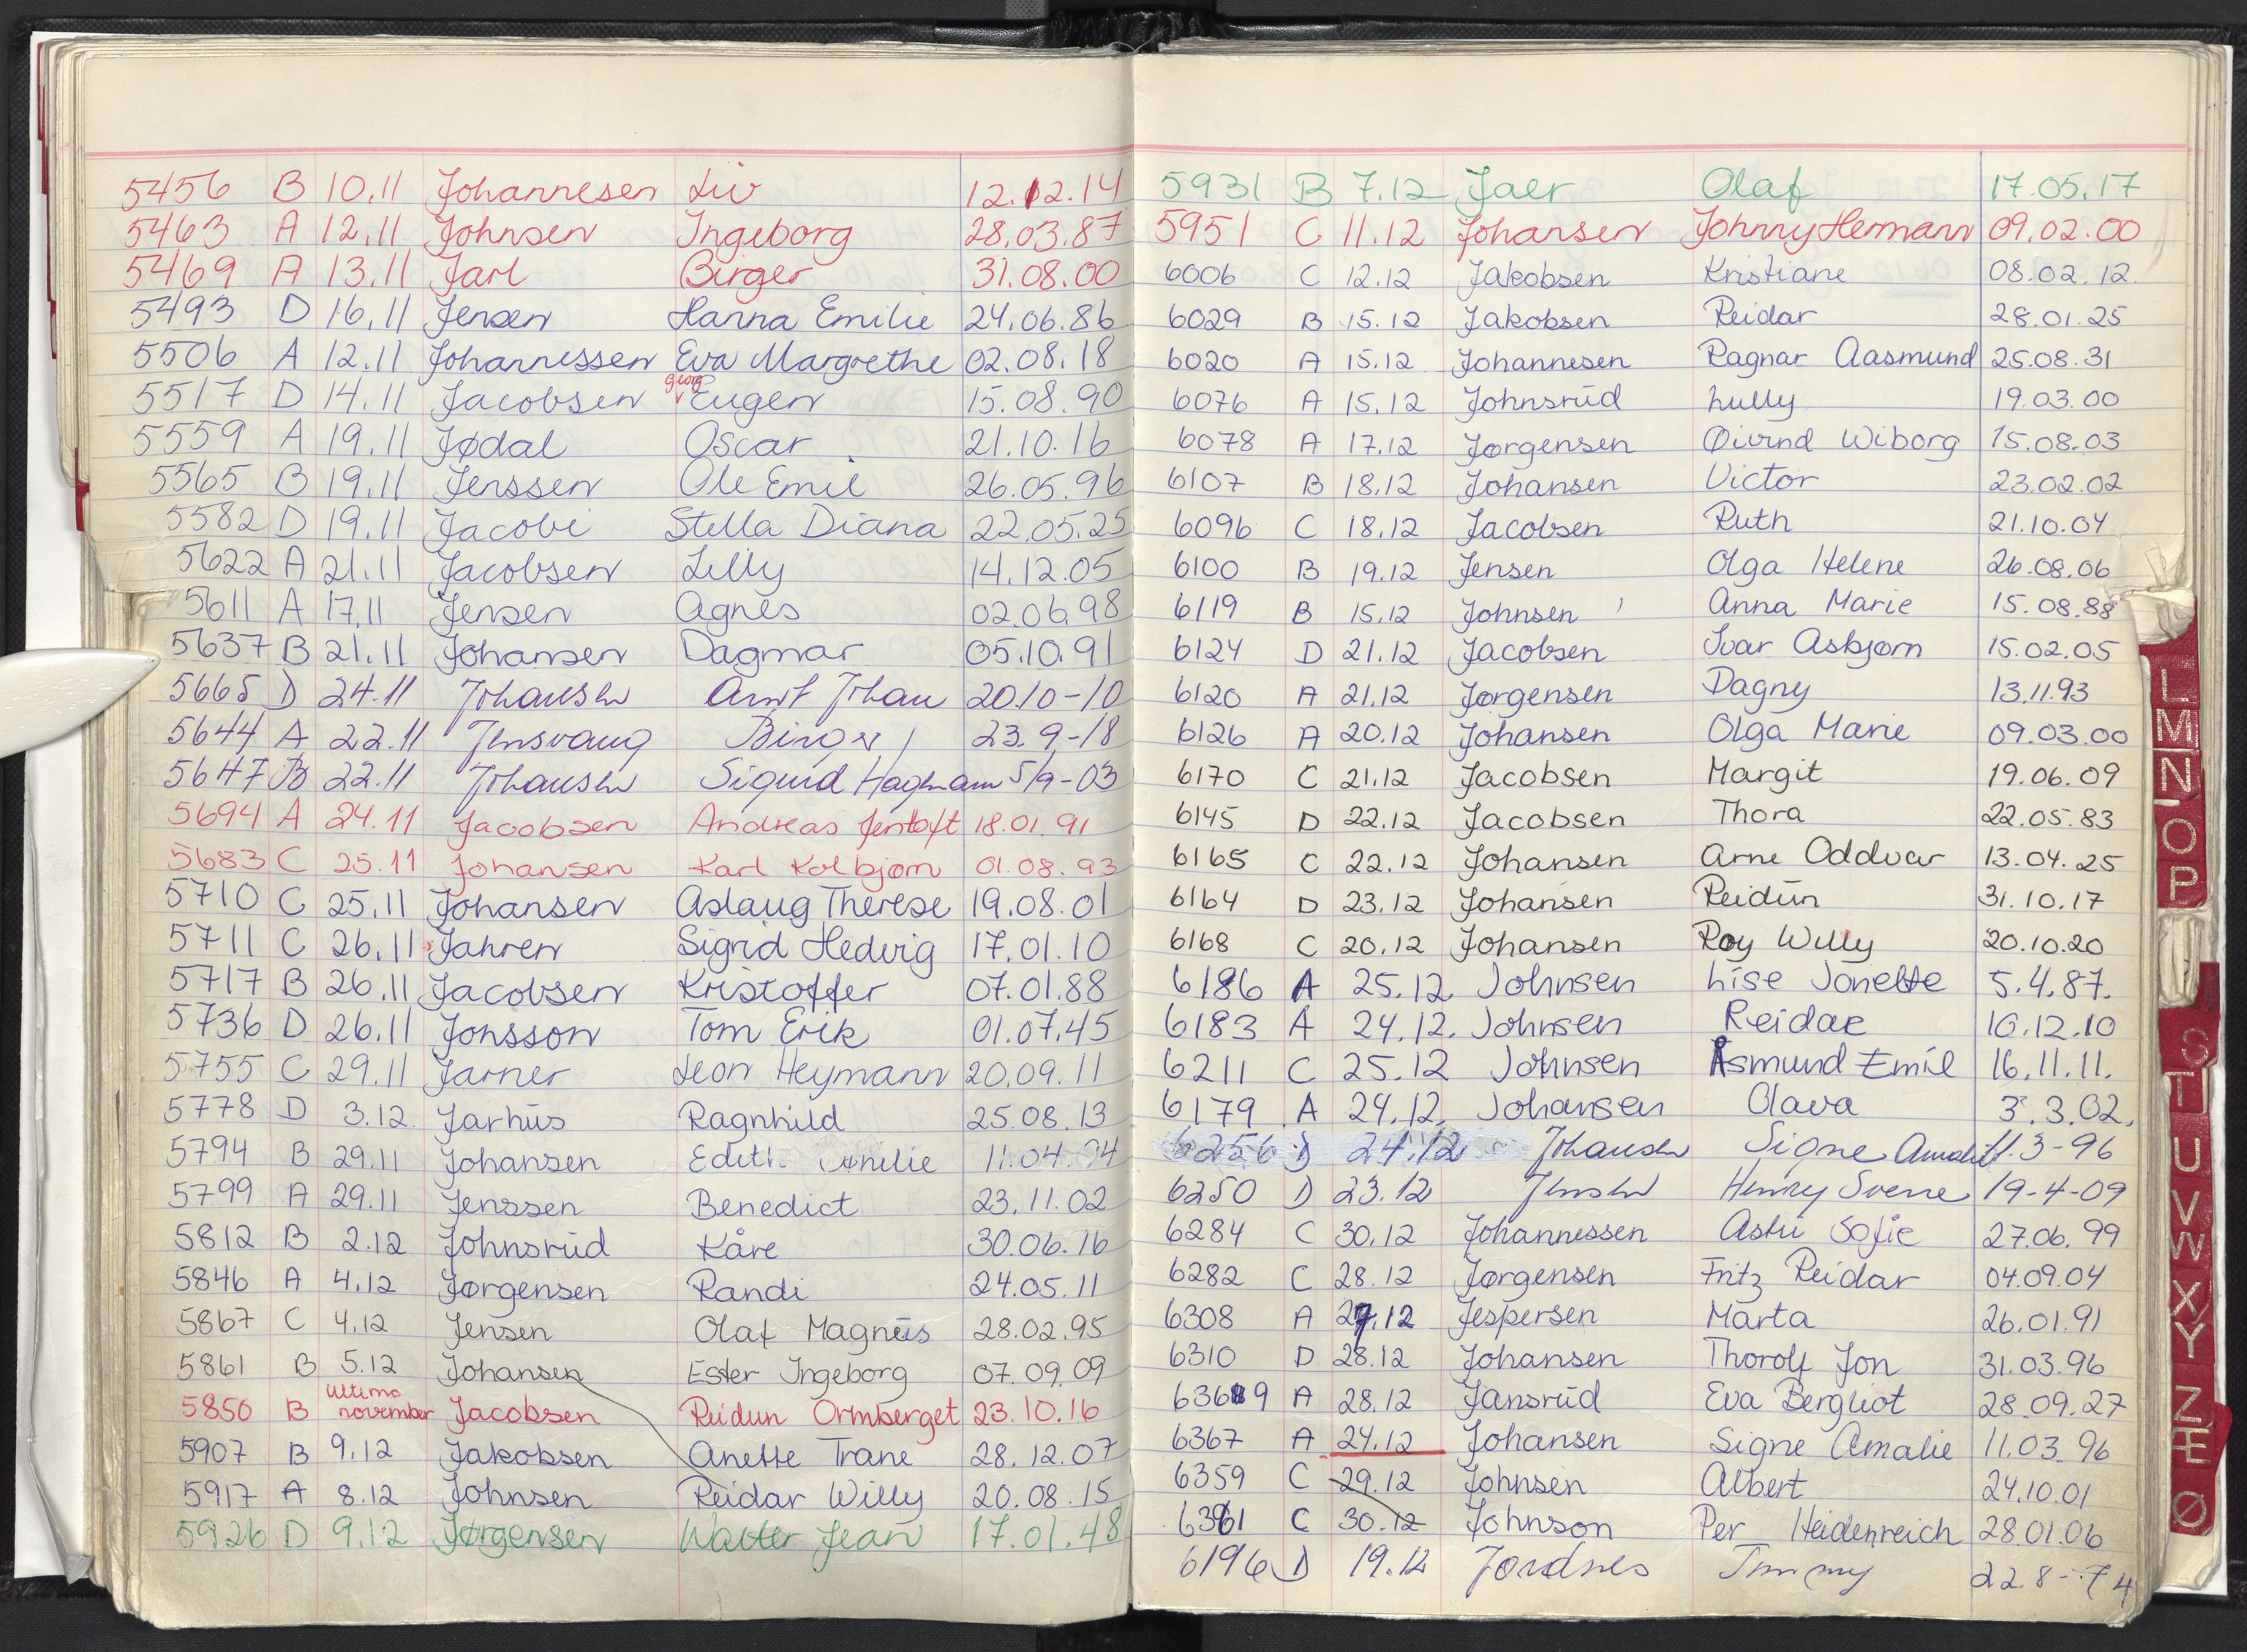 5456 B 10.11 Johannesen Liv 12.12.14
5463 A 12.11 Johnsen Ingeborg 28.03.87
5469 A 13.11 Jarl Birger 31.08.00
5493 D 16.11 Jensen Hanna Emilie 24.06.86
5506 A 12.11 Johannessen Eva Margrethe 02.08.18
georg
5517 D 14.11 Jacobsen Eugen 15.08.90
5559 A 19.11 Jødal Oscar 21.10.16
5565 B 19.11 Jenssen Ole Emil 26.05.96
5582 D 19.11 Jacobi Stella Diana 22.05.25
5622 A 21.11 Jacobsen Lilly 14.12.05
5611 A 17.11 Jensen Agnes 02.06.98
5637 B 21.11 Johansen Dagmar 05.10.91
5665 D 24.11 Johansen Arnt Johan 20.10-10
5644 A 22.11 Jensvang Birger 23.9-18
5647 B 22.11 Johansen Sigurd 5/9-03
5694 A 24.11 Jacobsen Andreas Jentoft 18.01.91
5683 C 25.11 Johansen Karl Kolbjørn 01.08.93
5710 C 25.11 Johansen Aslaug Therese 19.08.01
5711 C 26.11 Jahren Sigrid Hedvig 17.01.10
5717 B 26.11 Jacobsen Kristoffer 07.01.88
5736 D 26.11 Jonsson Tom Erik 01.07.45
5755 C 29.11 Jarner Leon Heymann 20.09.11
5778 D 3.12 Jarhus Ragnhild 25.08.13
5794 B 29.11 Johansen Edith 11.04.
5799 A 29.11 Jenssen Benedict 23.11.02
5812 B 2.12 Johnsrud Kåre 30.06.16
5846 A 4.12 Jørgensen Randi 24.05.11
5867 C 4.12 Jensen Olaf Magnus 28.02.95
5861 B 5.12 Johansen Ester Ingeborg 07.09.09
5850 B ultimo november Jacobsen Reidun Ormberget 23.10.16
5907 B 9.12 Jakobsen Anette Trane 28.12.07
5917 A 8.12 Johnsen Reidar Willy 20.08.15
5926 D 9.12 Jørgensen Walter Jean 17.01.48
5931 B 7.12 Jaer Olaf 17.05.17
5951 C 11.12 Johansen Johnny Hermann 09.02.00
6006 C 12.12 Jakobsen Kristiane 08.02.12
6029 B 15.12 Jakobsen Reidar 28.01.25
6020 A 15.12 Johannesen Ragnar Aasmund 25.08.31
6076 A 15.12 Johnsrud Lully 19.03.00
6078 A 17.12 Jørgensen Øivind Wiborg 15.08.03
6107 B 18.12 Johansen Victor 23.02.02
6096 C 18.12 Jacobsen Ruth 21.10.04
6100 B 19.12 Jensen Olga Helene 26.08.06
6119 B 15.12 Johnsen Anna Marie 15.08.88
6124 D 21.12 Jacobsen Ivar Asbjørn 15.02.05
6120 A 21.12 Jørgensen Dagny 13.11.93
6126 A 20.12 Johansen Olga Marie 09.03.00
6170 C 21.12 Jacobsen Margit 19.06.09
6145 D 22.12 Jacobsen Thora 22.05.83
6165 C 22.12 Johansen Arne Oddvar 13.04.25
6164 D 23.12 Johansen Reidun 31.10.17
6168 C 20.12 Johansen Roy Willy 20.10.20
6186 A 25.12. Johnsen Lise Jonette 5.4.87.
6183 A 24.12. Johnsen Reidar 10.12.10
6211 C 25.12 Johnsen Asmund Emil 16.11.11.
6179 A 24.12. Johansen Olava 3.3.02.
6256 D 24.12 Johansen Signe 11.3-96
6250 D 23.12 Jensen Henry Sverre 19-4-09
6284 C 30.12 Johannessen Astri Sofie 27.06.99
6282 C 28.12 Jørgensen Fritz Reidar 04.09.04
6308 A 27.12 Jespersen Marta 26.01.91
6310 D 28.12 Johansen Thorolf Jon 31.03.96
6369 A 28.12 Jansrud Eva Bergliot 28.09.27
6367 A 24.12 Johansen Signe Amalie 11.03.96
6359 C 29.12 Johnsen Albert 24.10.01
6361 C 30.12 Johnson Per Heidenreich 28.01.06
6196 D 19.12 Jordnes Jimmy 22.8-74
L
M
N
O
P
S
T
U
V
W
X
Y
Z
Æ
Ø